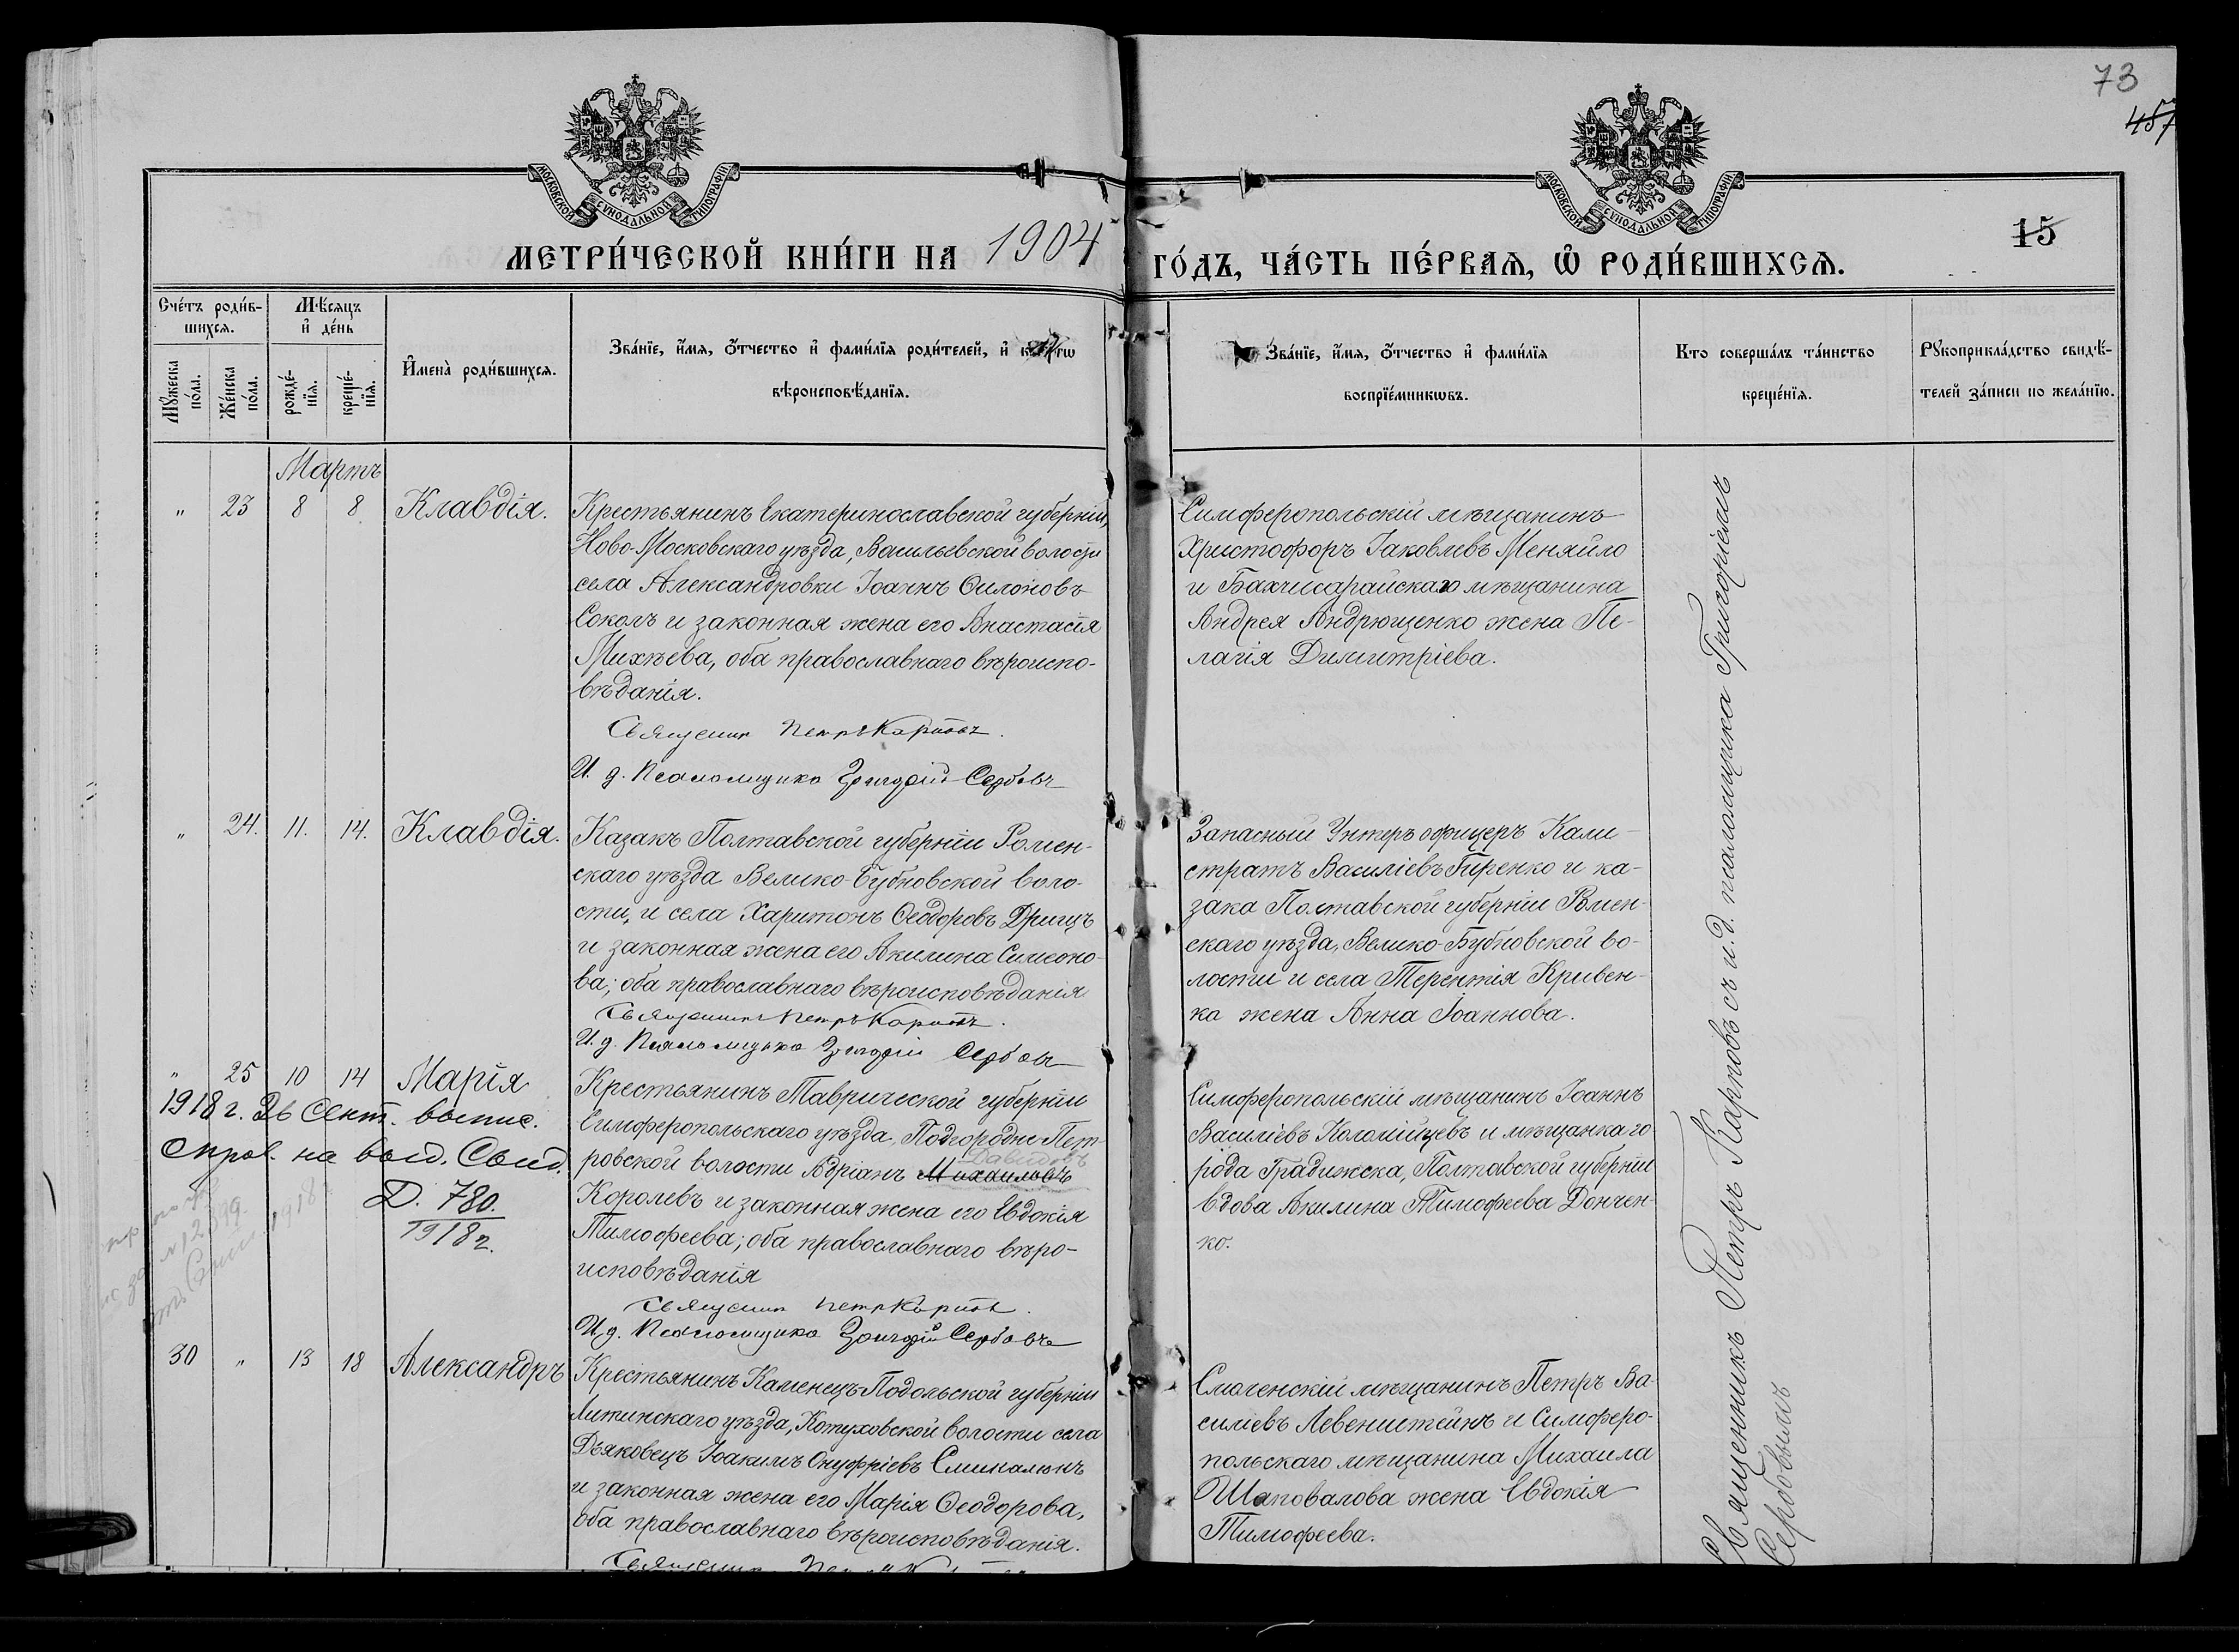 73
457
МОСКОВСКОЙ СУНОДАЛЬНОЙ ТИПОГРАФІИ
МОСКОВСКОЙ СУНОДАЛЬНОЙ ТИПОГРАФІИ
15
МЕТРИ́ЧЕСКОЙ КНИ́ГИ НА 1904 ГО́ДЪ, ЧА́СТЬ ПЕ́РВАѦ, Ѡ҆ РОДИ́ВШИХСѦ.
Сче́тъ роди́в-
шихсѧ.
Мꙋ́жеска по́ла.
Же́нска по́ла.
Мѣ́сѧцъ
и҆ де́нь
рожде́-нїѧ.
креще́-нїѧ.
И҆мена̀ роди́вшихсѧ.
Зва́нїе, и҆́мѧ, ѻ҆́тчество и҆ фами́лїѧ роди́телей, и҆
вѣроисповѣ́данїѧ.
Зва́нїе, и҆́мѧ, ѻ҆́тчество и҆ фами́лїѧ
воспрїе́мникѡвъ.
Кто соверша́лъ та́инство
креще́нїѧ.
Рꙋкоприкла́дство свидѣ́-
телей за́писи по жела́нїю.
Мартъ
" 23 8 8 Клавдія.
Крестьянинъ Екатеринославской губерніи,
Ново-Московскаго уѣзда, Васильевской волости
села Александровки Іоаннъ Ѳилоновъ
Соколъ и законная жена его Анастасія
Михѣева, оба православнаго вѣроиспо-
вѣданія.
Священник Петръ Карповъ.
И. д. Псаломщика Григорій Сербовъ
Симферопольскій мѣщанинъ
Христофоръ Іаковлевъ Меняйло
и Бахчисарайскаго мѣщанина
Андрея Андрющенко жена Пе-
лагія Димитріева.
" 24. 11. 14. Клавдія.
Казакъ Полтавской губерніи Ромен-
скаго уѣзда Велико-Бубновской воло-
сти, и села Харитонъ Ѳеодоровъ Дрищъ
и законная жена его Акилина Симеоно-
ва; оба православнаго вѣроисповѣданія
Священникъ Петръ Карповъ.
И. д. Псаломщика Григорій Сербовъ
Запасный Унтеръ офицеръ Кали-
стратъ Василіевъ Гиренко и ка-
зака Полтавской губерніи Ромен-
скаго уѣзда, Велико-Бубновской во-
лости и села Терентія Кривен-
ка жена Анна Іоаннова.
" 25 10 14 Марія
1918 г. 26 Сент. выпис.
справ. на выд. Свид.
Д. 780.
1918 г.
№ 12,399
1918
Крестьянинъ Таврической губерніи
Симферопольскаго уѣзда, Подгородне-Пет-
ровской волости Адріанъ Михаиловъ Давидовъ
Королевъ и законная жена его Евдокія
Тимофеева; оба православнаго вѣро-
исповѣданія
Священник Петр Карповъ.
И. д. Псаломщика Григорій Сербовъ
Симферопольскій мѣщанинъ Іоаннъ
Василіевъ Коломійцевъ и мѣщанка го-
рода Градижска, Полтавской губерніи
вдова Акилина Тимофеева Дончен-
ко.
30 " 13 18 Александръ
Крестьянинъ Каменецъ-Подольской губерніи
Литинскаго уѣзда, Котуховской волости села
Дьяковецъ Іоакимъ Онуфріевъ
и законная жена его Марія Ѳеодорова,
оба православнаго вѣроисповѣданія.
Смоленскій мѣщанинъ Петръ Ва-
силіевъ Левенштейнъ и Симферо-
польскаго мѣщанина Михаила
Шаповалова жена Евдокія
Тимофеева.
Священникъ Петръ Карповъ съ и. д. псаломщика Григоріемъ
Сербовымъ